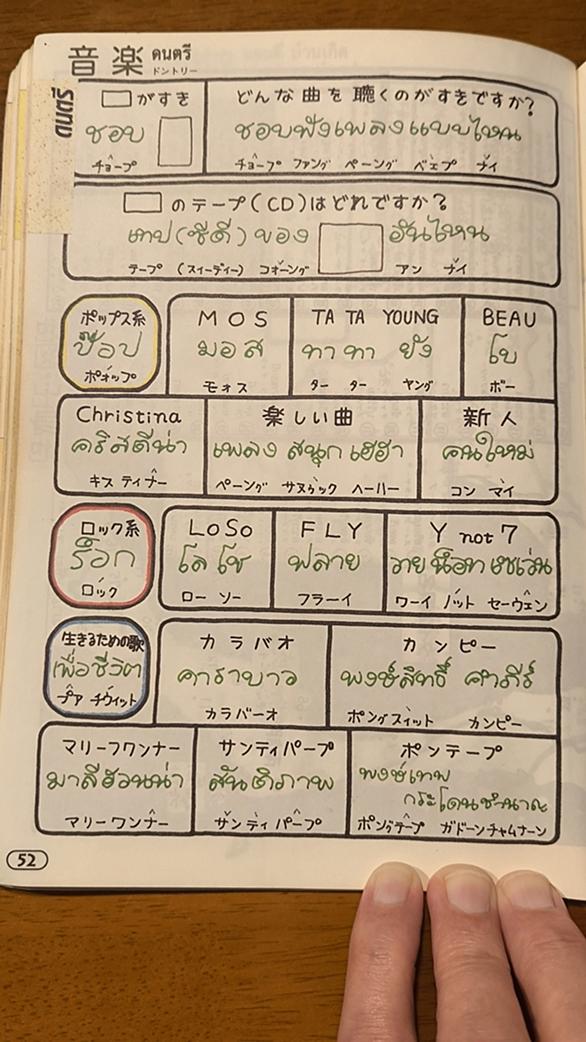 音楽 ดนตรี
ドントリー
ดนตรี
□がすき
ชอบ □
チョープ
どんな曲を聴くのがすきですか?
ชอบฟังเพลงแบบไหน
チョープ ファング ペーング ベェプ ナイ
□のテープ(CD)はどれですか?
เทป(ซีดี)ของ □ อันไหน
テープ (スィーディー) コオーング アン ナイ
ポップス系
ป๊อป
ポオップ
MOS
มอส
モォス
TA TA YOUNG
ทา ทา ยัง
ター ター ヤング
BEAU
โบ
ボー
Christina
คริสตีน่า
キス ティナー
楽しい曲
เพลง สนุก เฮฮา
ペーング サヌゥック ヘーハー
新人
คนใหม่
コン マイ
ロック系
ร็อก
ロック
LoSo
โลโซ
ロー ソー
FLY
ฟลาย
フラーイ
Y not 7
วาย น็อท เซเว่น
ワーイ ノット セーウェン
生きるための歌
เพื่อชีวิต
プァ チウィット
カラバオ
คาราบาว
カラバーオ
カンピー
พงษ์สิทธิ์ คำภีร์
ポングスィット カンピー
マリーフワンナー
มาลีฮวนน่า
マリーワンナー
サンティパープ
สันติภาพ
サンティパープ
ポンテープ
พงษ์เทพ
กระโดนชำนาญ
ポングテープ ガドーンチャムナーン
52